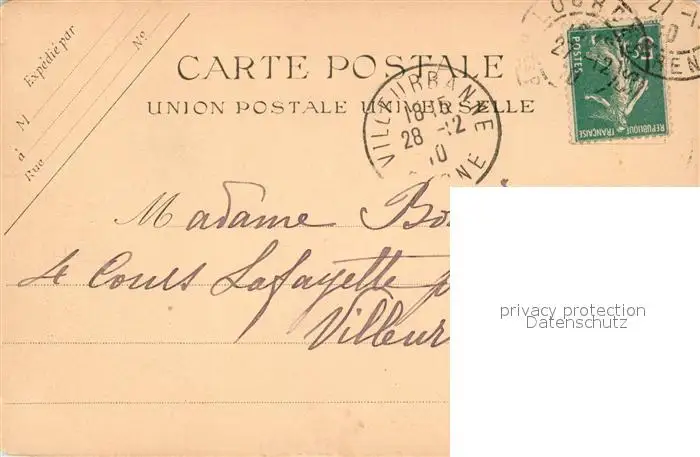 Expédié par
M
No
à
Rue
CARTE POSTALE
UNION POSTALE UNIVERSELLE
VILLEURBANNE
18 15
28 -12
10
POSTES
REPUBLIQUE FRANÇAISE
Madame
4 Cours Lafayette
Villeur
privacy protection
Datenschutz